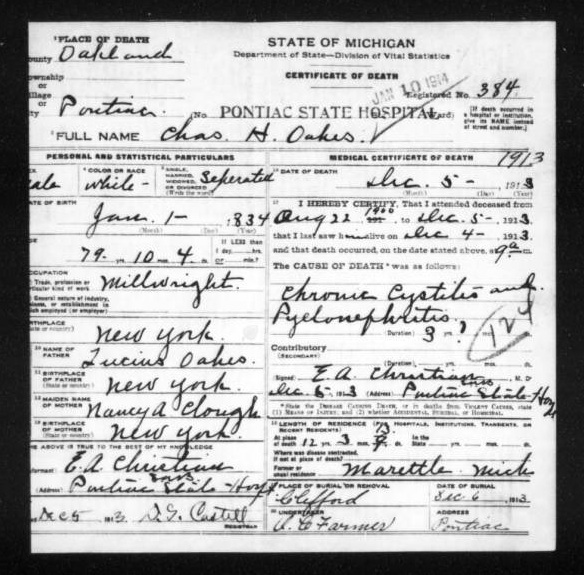 PLACE OF DEATH
STATE OF MICHIGAN
County Oakland
Department of State—Division of Vital Statistics
Township
CERTIFICATE OF DEATH
JAN 10 1914
Village
Registered No. 384
City Pontiac (No. PONTIAC STATE HOSPITAL Ward)
[If death occurred in a hospital or institution, give its NAME instead of street and number.]
FULL NAME Chas H. Oakes.
PERSONAL AND STATISTICAL PARTICULARS
MEDICAL CERTIFICATE OF DEATH
1913
COLOR OR RACE
white
SINGLE, MARRIED, WIDOWED, OR DIVORCED
(Write the word)
Seperated
DATE OF DEATH
Dec - 5 - 1913
(Month) (Day) (Year)
DATE OF BIRTH
Jan. 1 - 834
(Month) (Day) (Year)
I HEREBY CERTIFY, That I attended deceased from
Aug 22 1900 to Dec - 5 - 1913
that I last saw him alive on Dec 4 - 1913
and that death occurred, on the date stated above, at 9a
AGE
79 yrs. 10 mos. 4 ds.
If LESS than
1 day hrs.
or min.?
The CAUSE OF DEATH was as follows:
OCCUPATION
Trade, profession or particular kind of work
Millwright.
General nature of industry, business, or establishment in which employed (or employer)
Chronic Cystitis and
Pyelonephritis.
(Duration) 3 yrs.
124
BIRTHPLACE
(State or country)
New York.
Contributory
(SECONDARY)
(Duration)
NAME OF FATHER
Lucius Oakes.
Signed E. A. Christian M. D.
Dec 5, 1913 (Address) Pontiac State Hosp
BIRTHPLACE OF FATHER
(State or country)
New York.
State the DISEASE CAUSING DEATH, or in deaths from VIOLENT CAUSES, state (1) MEANS OF INJURY, and (2) whether ACCIDENTAL, SUICIDAL, or HOMICIDAL.
MAIDEN NAME OF MOTHER
Nancy A Clough
BIRTHPLACE OF MOTHER
(State or country)
New York
LENGTH OF RESIDENCE (For HOSPITALS, INSTITUTIONS, TRANSIENTS, OR RECENT RESIDENTS)
At place of death 12 yrs. 3 mos. In the State
Where was disease contracted, if not at place of death?
Former or usual residence Marette Mich
THE ABOVE IS TRUE TO THE BEST OF MY KNOWLEDGE
(Informant) E. A. Christian
(Address) Pontiac State Hosp
PLACE OF BURIAL OR REMOVAL
Clifford
DATE OF BURIAL
Dec 6 1913
Dec 5 1913
REGISTRAR
UNDERTAKER
Farmer
ADDRESS
Pontiac